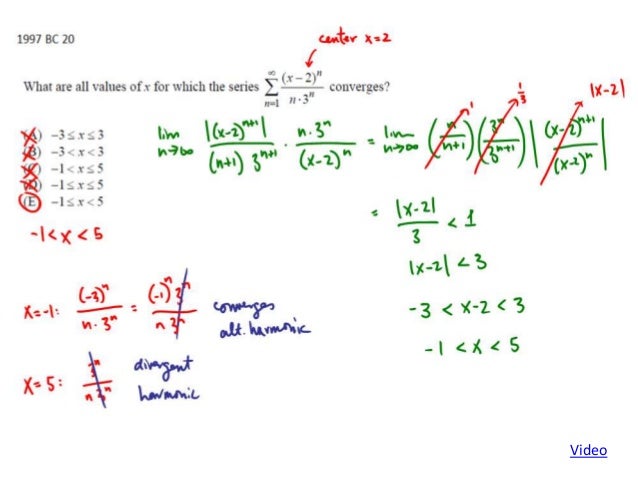 1997 BC 20
center x=2
What are all values of x for which the series \sum_{n=1}^{\infty} \frac{(x-2)^n}{n \cdot 3^n} converges?
(A) −3 ≤ x ≤ 3
(B) −3 < x < 3
(C) −1 < x ≤ 5
(D) −1 ≤ x ≤ 5
(E) −1 ≤ x < 5
-1 < x < 5
\lim_{n \to \infty} \frac{|(x-2)^{n+1}|}{(n+1) 3^{n+1}} \cdot \frac{n \cdot 3^n}{(x-2)^n} = \lim_{n \to \infty} \left(\frac{n}{n+1}\right) \left(\frac{3^n}{3^{n+1}}\right) \left|\frac{(x-2)^{n+1}}{(x-2)^n}\right|
1
\frac{1}{3}
|x-2|
= \frac{|x-2|}{3} < 1
|x-2| < 3
-3 < x-2 < 3
-1 < x < 5
x=-1: \frac{(-3)^n}{n \cdot 3^n} = \frac{(-1)^n 3^n}{n 3^n} converges
alt. harmonic
x=5: \frac{3^n}{n 3^n} divergent
harmonic
Video